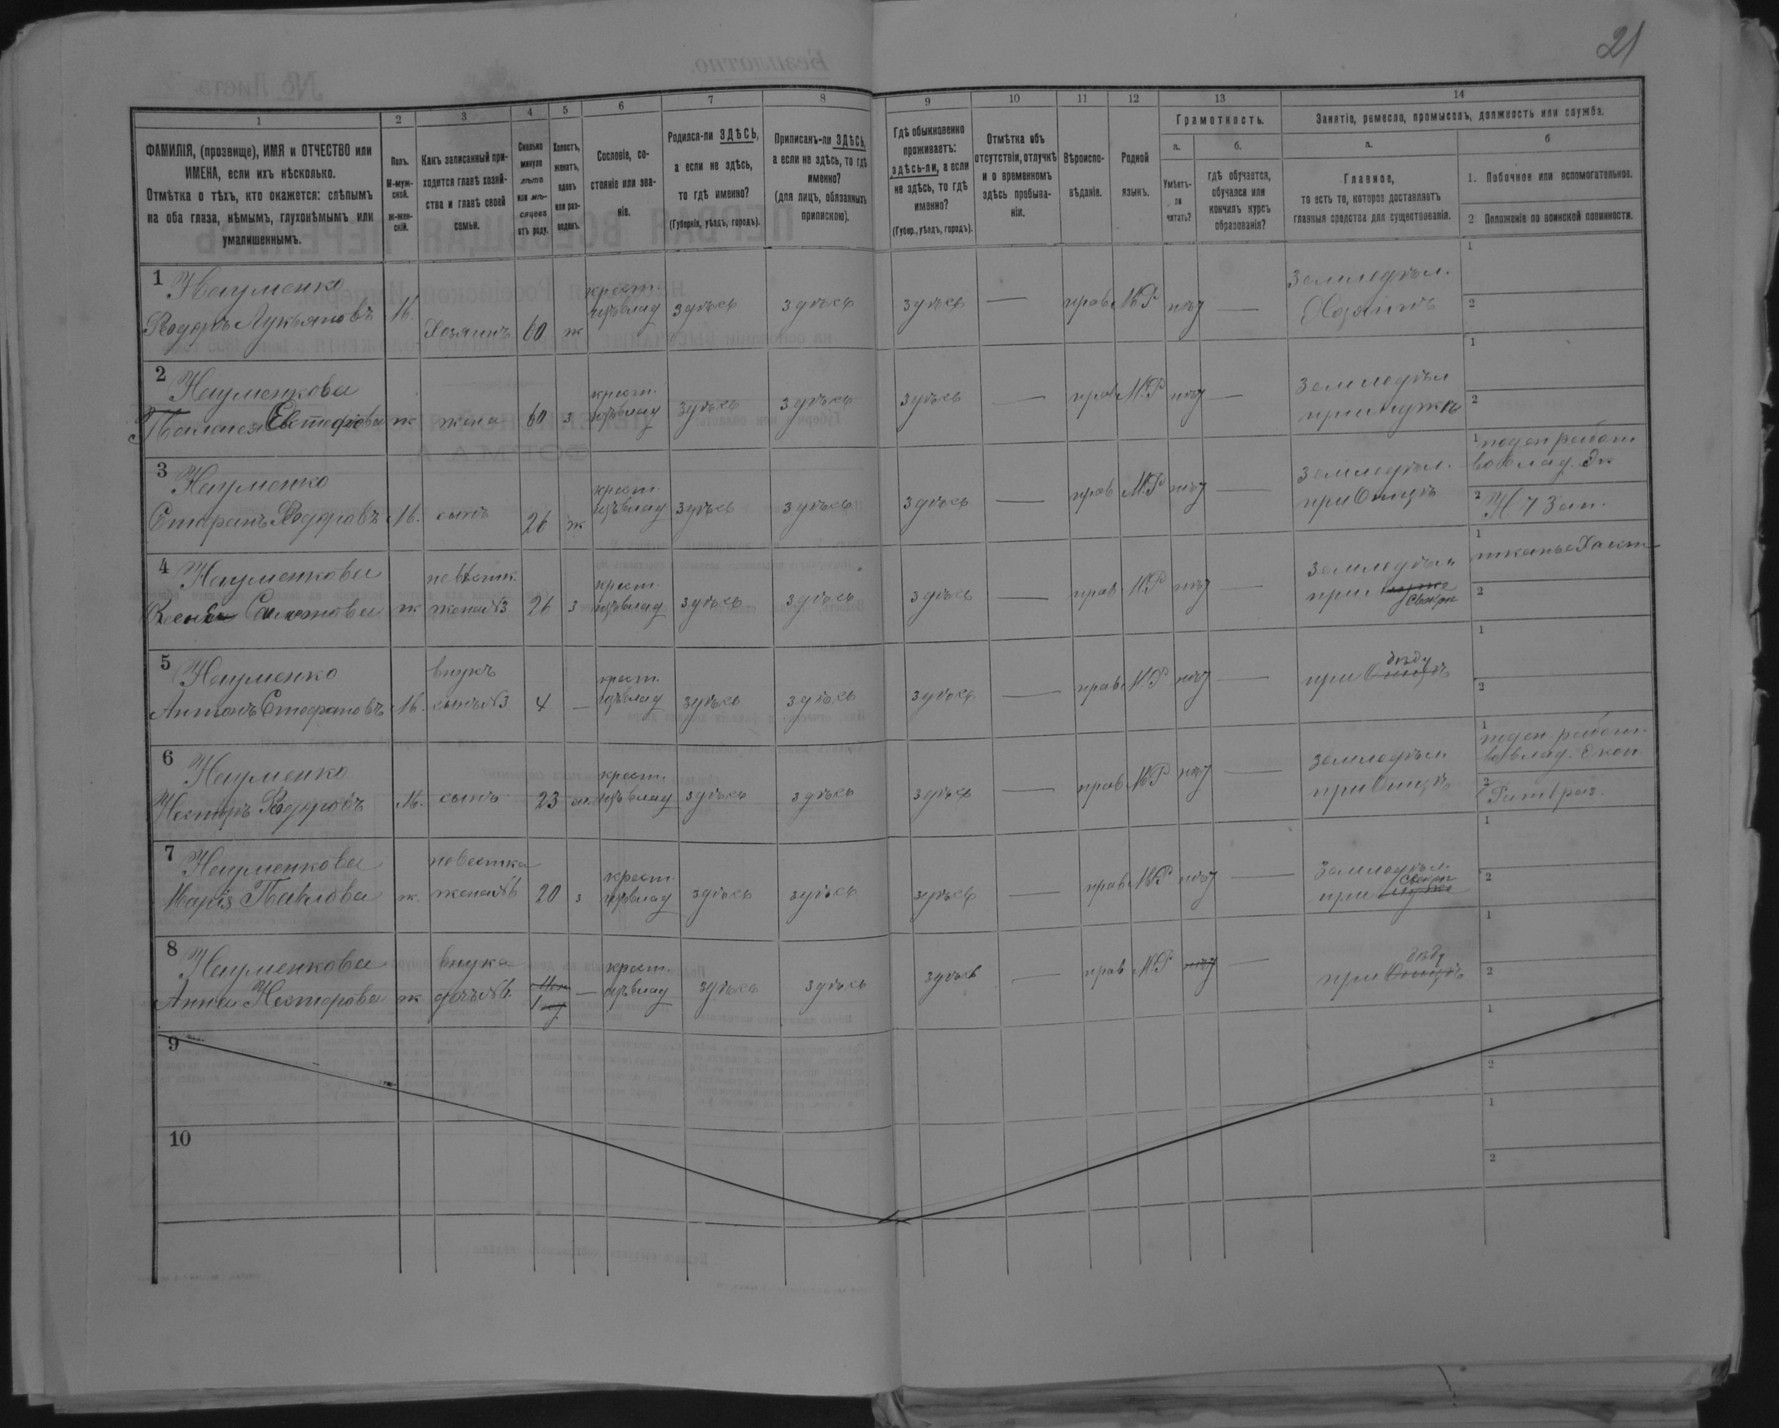 21
1 2 3 4 5 6 7 8 9 10 11 12 13 14
ФАМИЛІЯ, (прозвище), ИМЯ и ОТЧЕСТВО или
ИМЕНА, если ихъ нѣсколько.
Отмѣтка о тѣхъ, кто окажется: слѣпымъ
на оба глаза, нѣмымъ, глухонѣмымъ или
умалишеннымъ.
Полъ.
М-муж-
ской.
ж-жен-
скій.
Какъ записанный при-
ходится главѣ хозяй-
ства и главѣ своей
семьи.
Сколько
минуло
лѣтъ
или мѣ-
сяцевъ
отъ роду.
Холостъ,
женатъ,
вдовъ
или раз-
веденъ.
Сословіе, со-
стояніе или зва-
ніе.
Родился-ли ЗДѢСЬ,
а если не здѣсь,
то гдѣ именно?
(Губернія, уѣздъ, городъ).
Приписанъ-ли ЗДѢСЬ,
а если не здѣсь, то гдѣ
именно?
(для лицъ, обязанныхъ
припискою).
Гдѣ обыкновенно
проживаетъ:
здѣсь-ли, а если
не здѣсь, то гдѣ
именно?
(Губер., уѣздъ, городъ).
Отмѣтка объ
отсутствіи, отлучкѣ
и о временномъ
здѣсь пребыва-
ніи.
Вѣроиспо-
вѣданіе.
Родной
языкъ.
Грамотность.
а.
Умѣетъ-
ли
читать?
б.
гдѣ обучается,
обучался или
кончилъ курсъ
образованія?
Занятіе, ремесло, промыселъ, должность или служба.
а.
Главное,
то есть то, которое доставляетъ
главныя средства для существованія.
б
1. Побочное или вспомогательное.
2 Положеніе по воинской повинности.
1 Науменко
Ѳедоръ Лукьяновъ М. Хозяинъ 60 ж крест. изъ влад здѣсь здѣсь здѣсь — прав М.Р нѣт — Земледѣл. Хозяинъ 1 2
2 Науменкова
Пелагея Евстафіева ж жена 60 з крест. изъ влад здѣсь здѣсь здѣсь — прав М.Р нѣт — Земледѣл при мужѣ 1 2
3 Науменко
Стефанъ Ѳедоровъ М. сынъ 26 ж крест. изъ влад здѣсь здѣсь здѣсь — прав М.Р нѣт — Земледѣл. при отцѣ 1 поден работ. во влад. Эк 2
4 Науменкова
невѣстк жена №3 26 з крест. изъ влад здѣсь здѣсь здѣсь — прав М.Р нѣт — Земледѣл при свекрѣ 1 2
5 Науменко
Антонъ Стефановъ М. внукъ сынъ №3 4 — крест. изъ влад здѣсь здѣсь здѣсь — прав М.Р нѣт — при отцѣ дѣду 1 2
6 Науменко
Несторъ Ѳедоровъ М. сынъ 23 ж крест. изъ влад здѣсь здѣсь здѣсь — прав М.Р нѣт — Земледѣл при отцѣ 1 поден работ. во влад. Экон 2
7 Науменкова
Марія Павлова ж невестка жена №6 20 з крест. изъ влад здѣсь здѣсь здѣсь — прав М.Р нѣт — Земледѣл при мужѣ свекрѣ 1 2
8 Науменкова
Анна Несторова ж внука дочь №6. — крест. изъ влад здѣсь здѣсь здѣсь — прав М.Р нѣт — при отцѣ дѣду 1 2
9 1 2
10 1 2